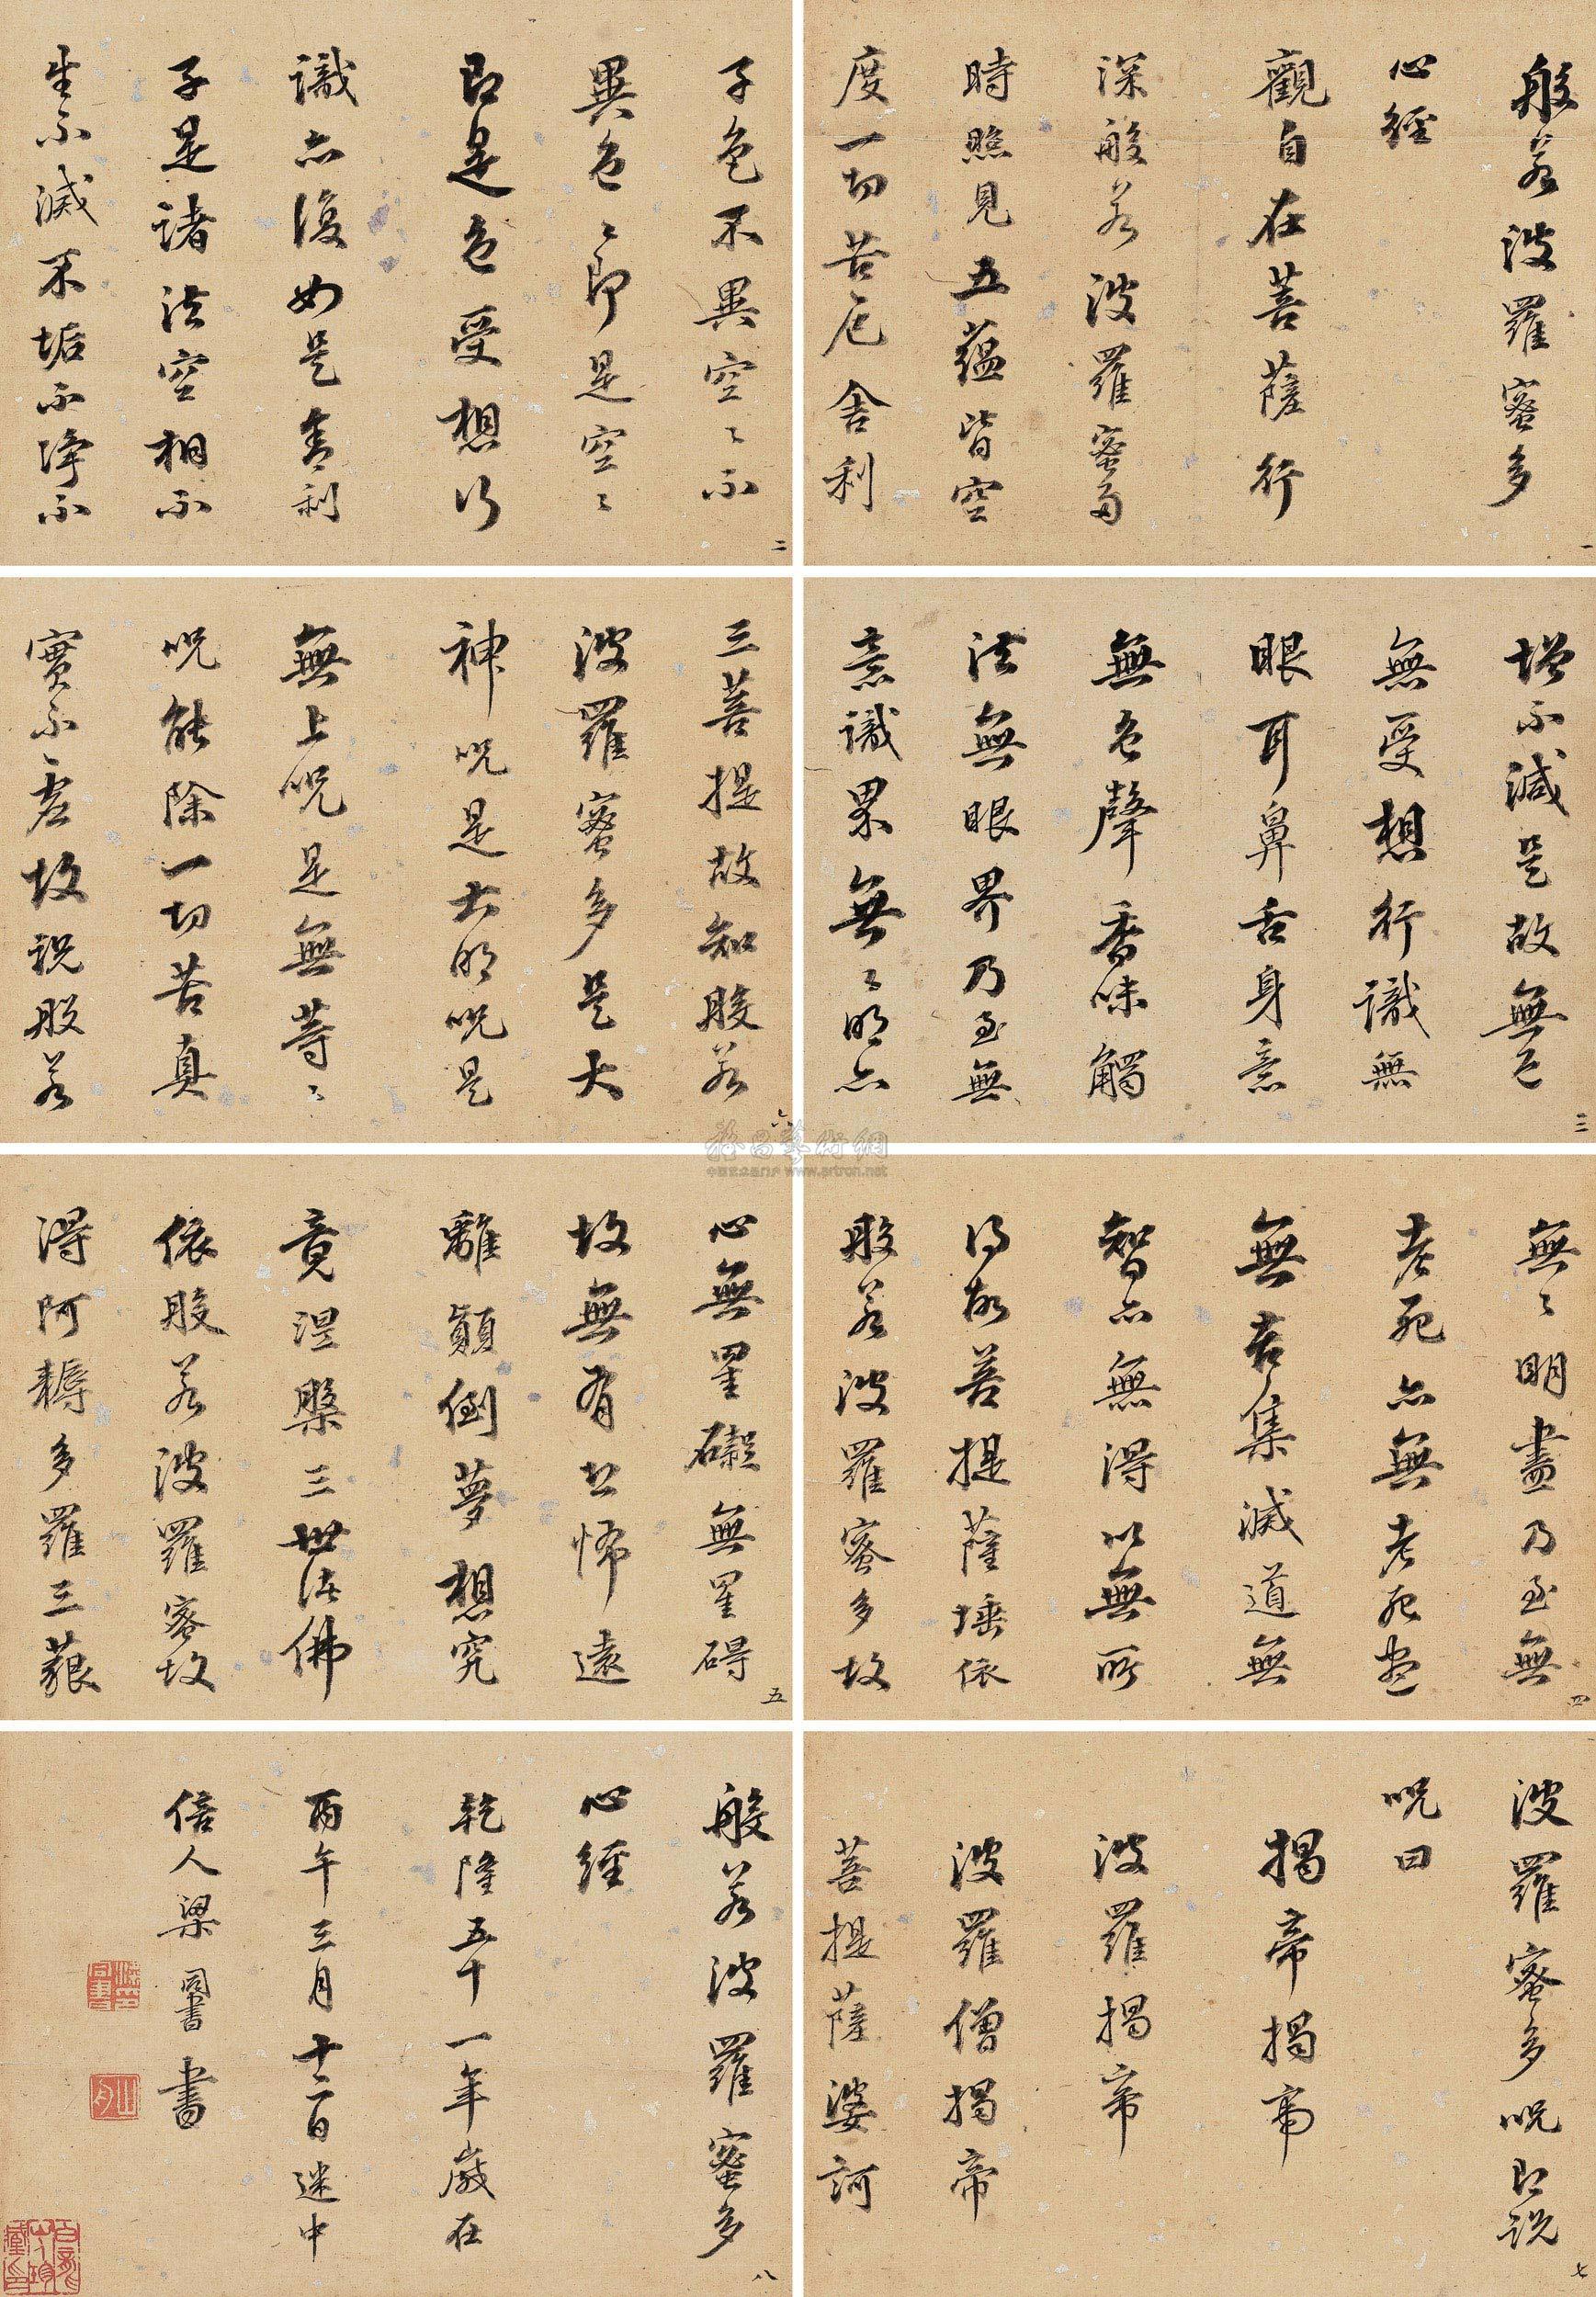 般若波羅蜜多
心經
觀自在菩薩行
深般若波羅蜜多
時照見五蘊皆空
度一切苦厄舍利
一
子色不異空〻不
異色〻即是空〻
即是色受想行
識亦復如是舍利
子是諸法空相不
生不滅不垢不淨不
二
增不減是故無色
無受想行識無
眼耳鼻舌身意
無色聲香味觸
法無眼界乃至無
意識界無〻明亦
三
無〻明盡乃至無
老死亦無老死盡
無苦集滅道無
智亦無得以無所
得故菩提薩埵依
般若波羅蜜多故
四
心無罣礙無罣碍
故無有恐怖遠
離顛倒夢想究
竟涅槃三世諸佛
依般若波羅蜜故
得阿耨多羅三藐
五
三菩提故知般若
波羅蜜多是大
神咒是大明咒是
無上咒是無等〻
咒能除一切苦真
實不虛故說般若
六
波羅蜜多咒即說
咒曰
揭帝揭帝
波羅揭帝
波羅僧揭帝
菩提薩婆訶
七
般若波羅蜜多
心經
乾隆五十一年歲在
丙午三月十二日迷中
倍人梁同書書
八
www.artron.net